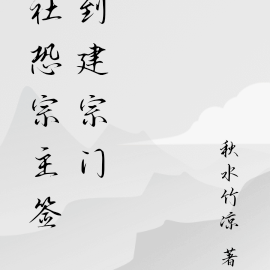 社恐宗主签
到建宗门
秋水竹凉 著